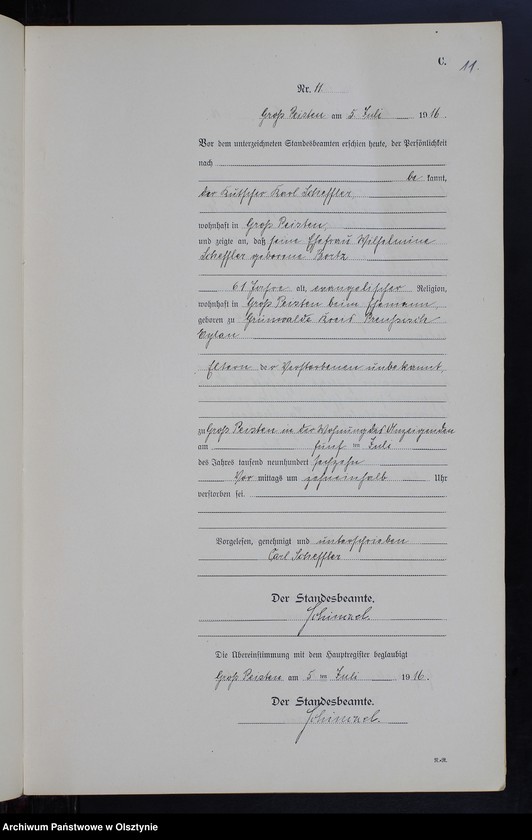 C. 11.
Nr. 11
Groß Peisten am 5. Juli 1916.
Vor dem unterzeichneten Standesbeamten erschien heute, der Persönlichkeit
nach
be kannt,
der Kutscher Karl Scheffler,
wohnhaft in Groß Peisten,
und zeigte an, daß seine Ehefrau Wilhelmine
Scheffler geborene
61 Jahre alt, evangelischer Religion,
wohnhaft in Groß Peisten beim Ehemann,
geboren zu Grünwalde Kreis Preußisch
Eylau
Eltern der Verstorbenen unbekannt,
zu Groß Peisten in der Wohnung des Anzeigenden
am fünften Juli
des Jahres tausend neunhundert sechzehn
Vor mittags um zehneinhalb Uhr
verstorben sei.
Vorgelesen, genehmigt und unterschrieben
Carl Scheffler
Der Standesbeamte.
Die Übereinstimmung mit dem Hauptregister beglaubigt
Groß Peisten am 5ten Juli 1916.
Der Standesbeamte.
Archiwum Państwowe w Olsztynie